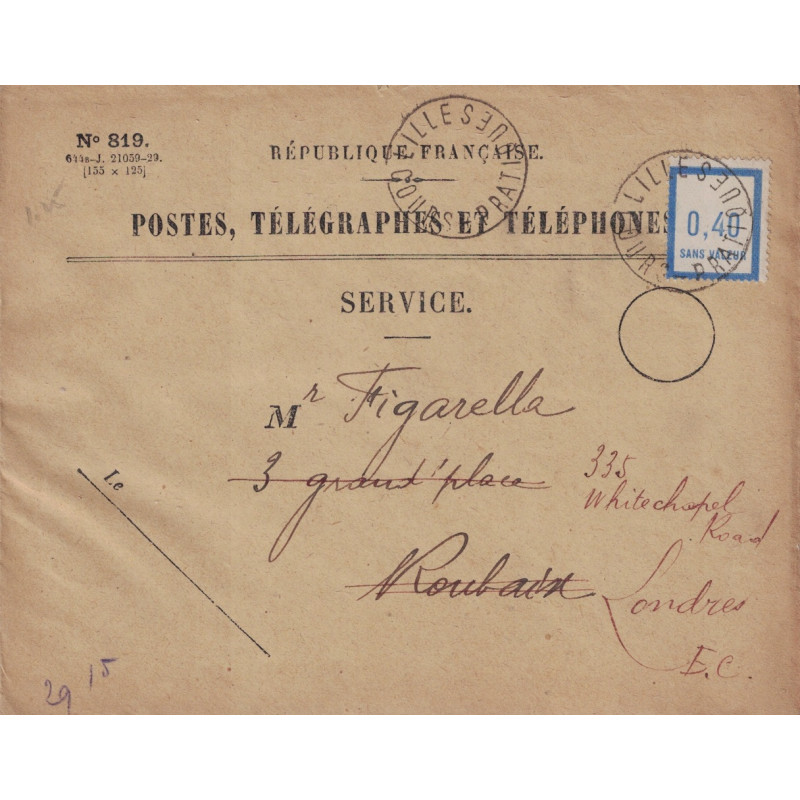 Nº 819.
644s-J. 21059-29.
[155 × 125]
RÉPUBLIQUE FRANÇAISE.
POSTES, TÉLÉGRAPHES ET TÉLÉPHONES
LILLE COURS PRATIQUES
LILLE COURS PRATIQUES
0,40
SANS VALEUR
SERVICE.
Mr Figarella
3 grand'place
335
Whitechapel
Road
Roubaix
Londres
E.C.
Le
29 15